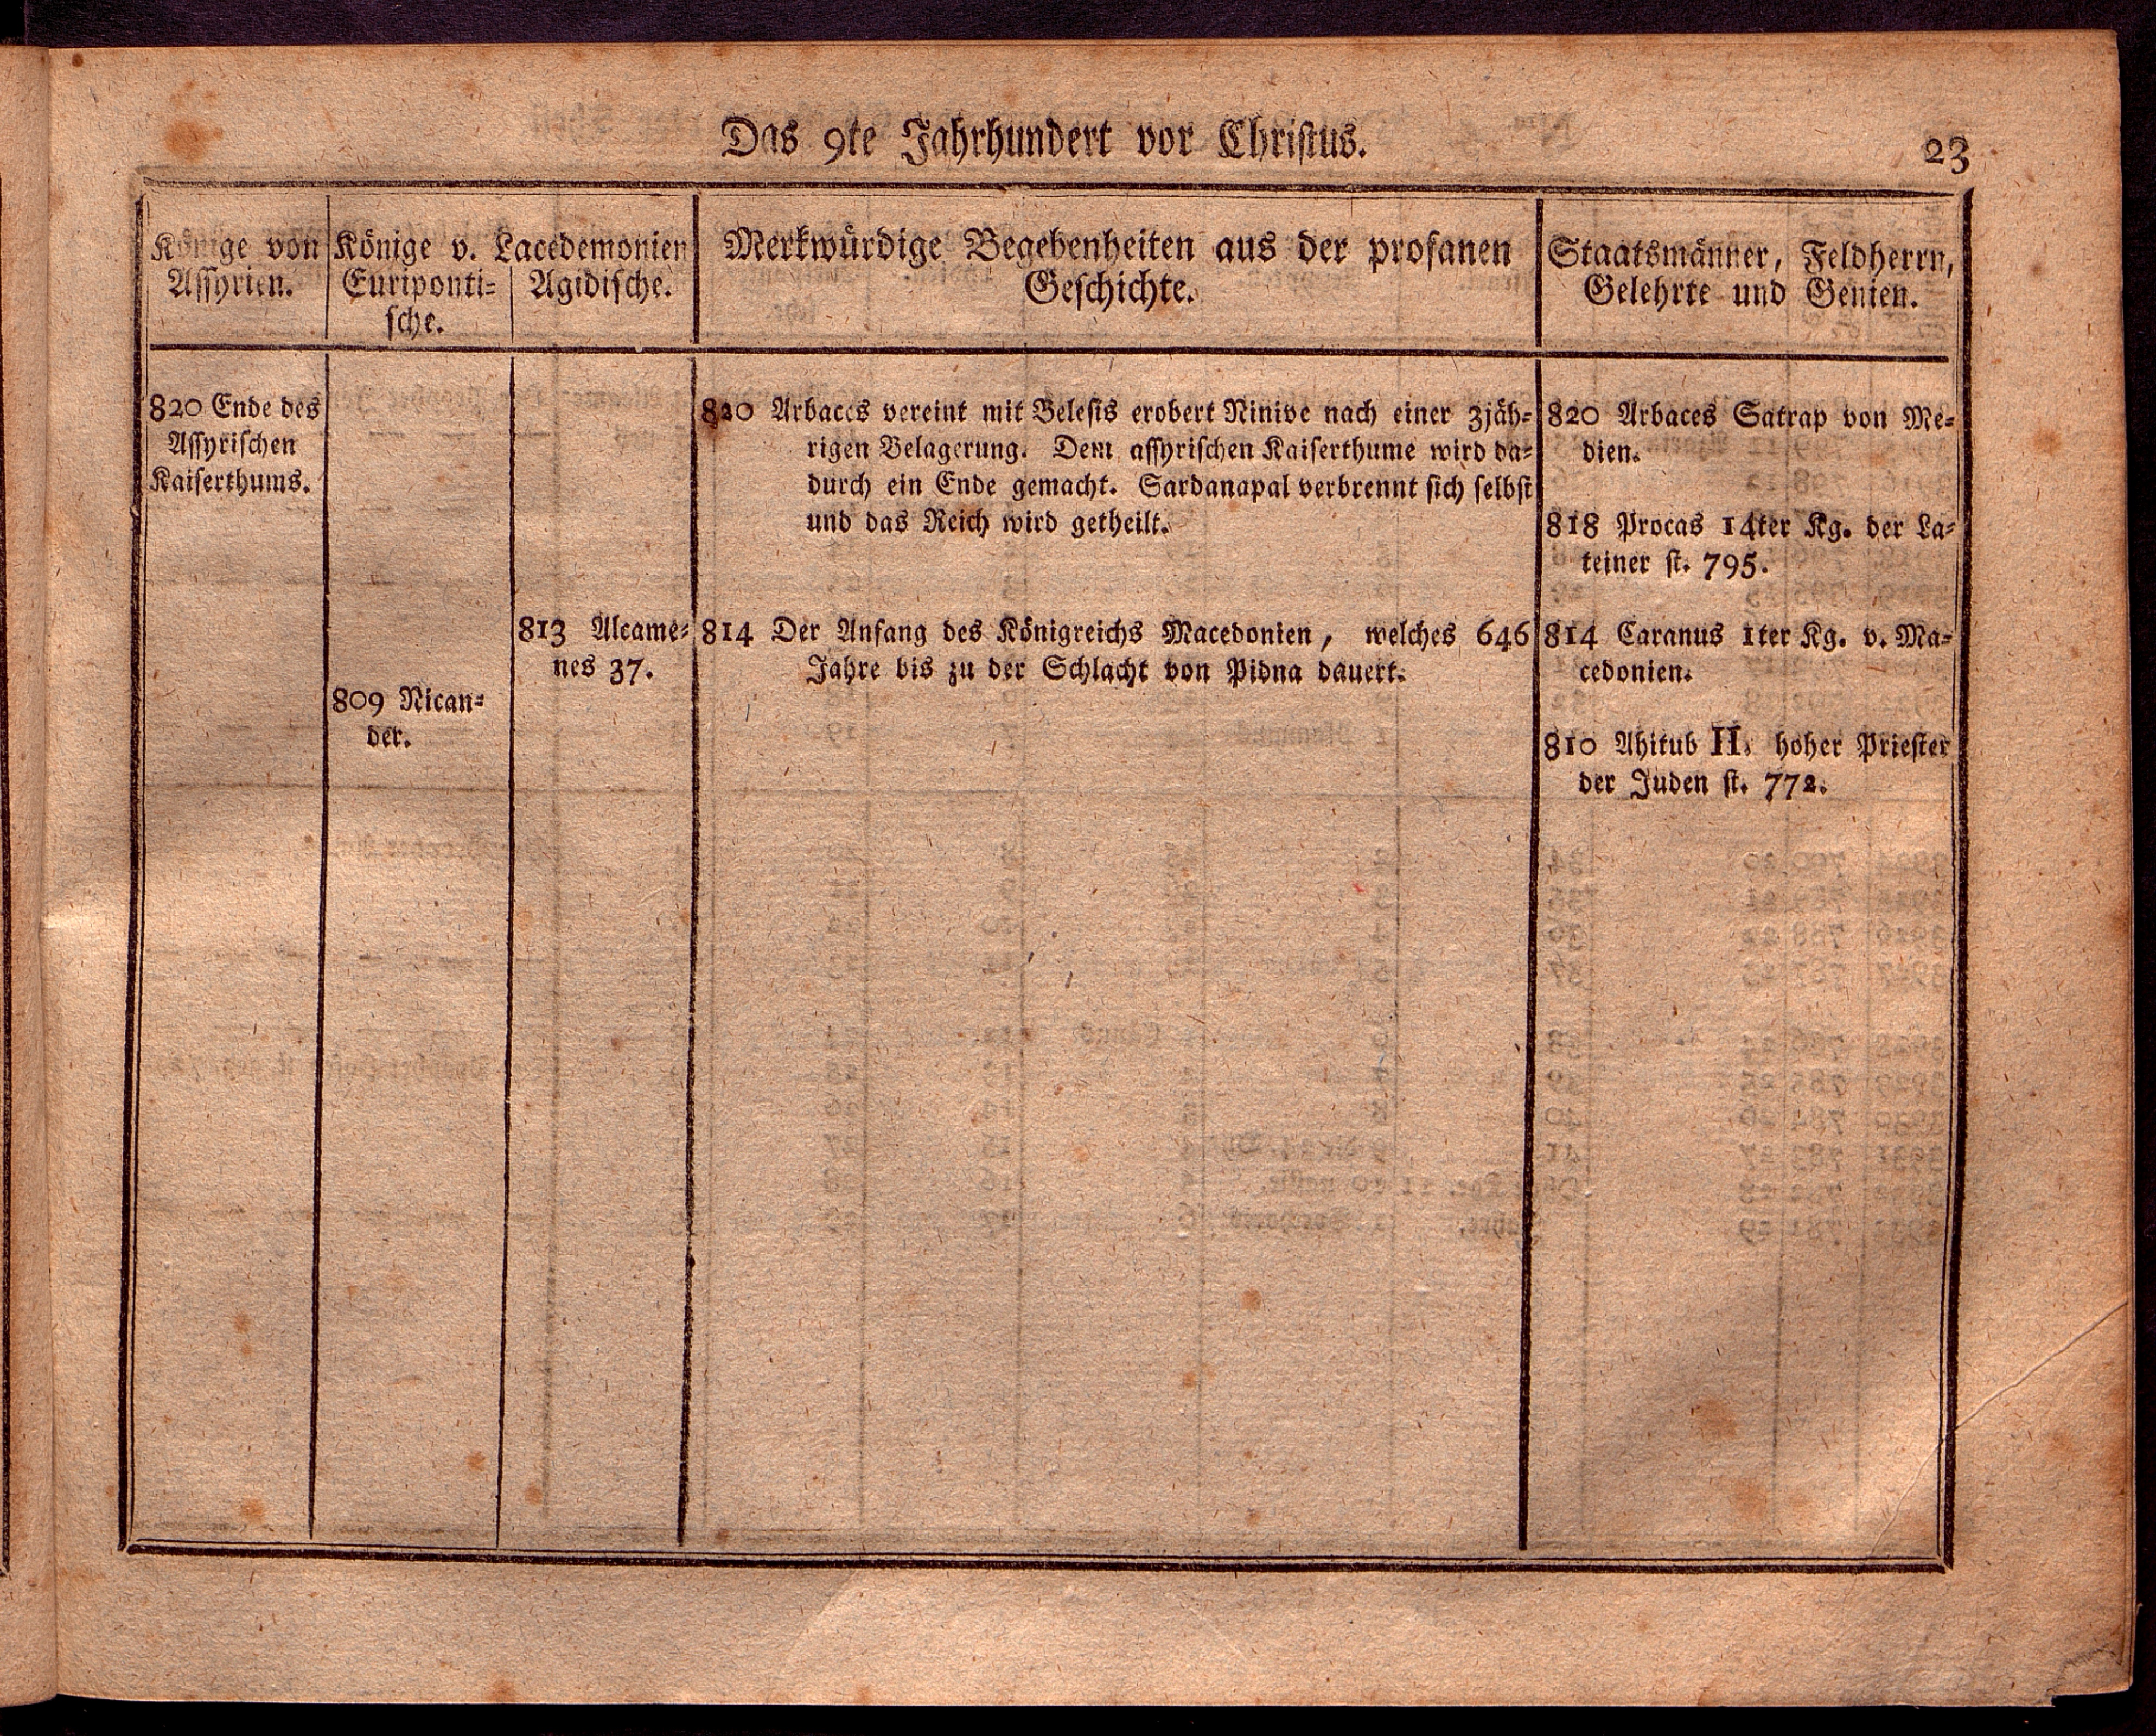 Das 9te Jahrhundert vor Christus.
23
Könige von
Assyrien.
Könige v. Lacedemonien
Euriponti-
sche.
Agidische.
Merkwürdige Begebenheiten aus der profanen
Geschichte.
Staatsmänner, Feldherrn,
Gelehrte und Genien.
820 Ende des
Assyrischen
Kaiserthums.
809 Nican-
der.
813 Alcame-
nes 37.
820 Arbaces vereint mit Belesis erobert Ninive nach einer 3jäh-
rigen Belagerung. Dem assyrischen Kaiserthume wird da-
durch ein Ende gemacht. Sardanapal verbrennt sich selbst
und das Reich wird getheilt.
814 Der Anfang des Königreichs Macedonien, welches 646
Jahre bis zu der Schlacht von Pidna dauert.
820 Arbaces Satrap von Me-
dien.
818 Procas 14ter Kg. der La-
teiner st. 795.
814 Caranus 1ter Kg. v. Ma-
cedonien.
810 Ahitub II. hoher Priester
der Juden st. 772.